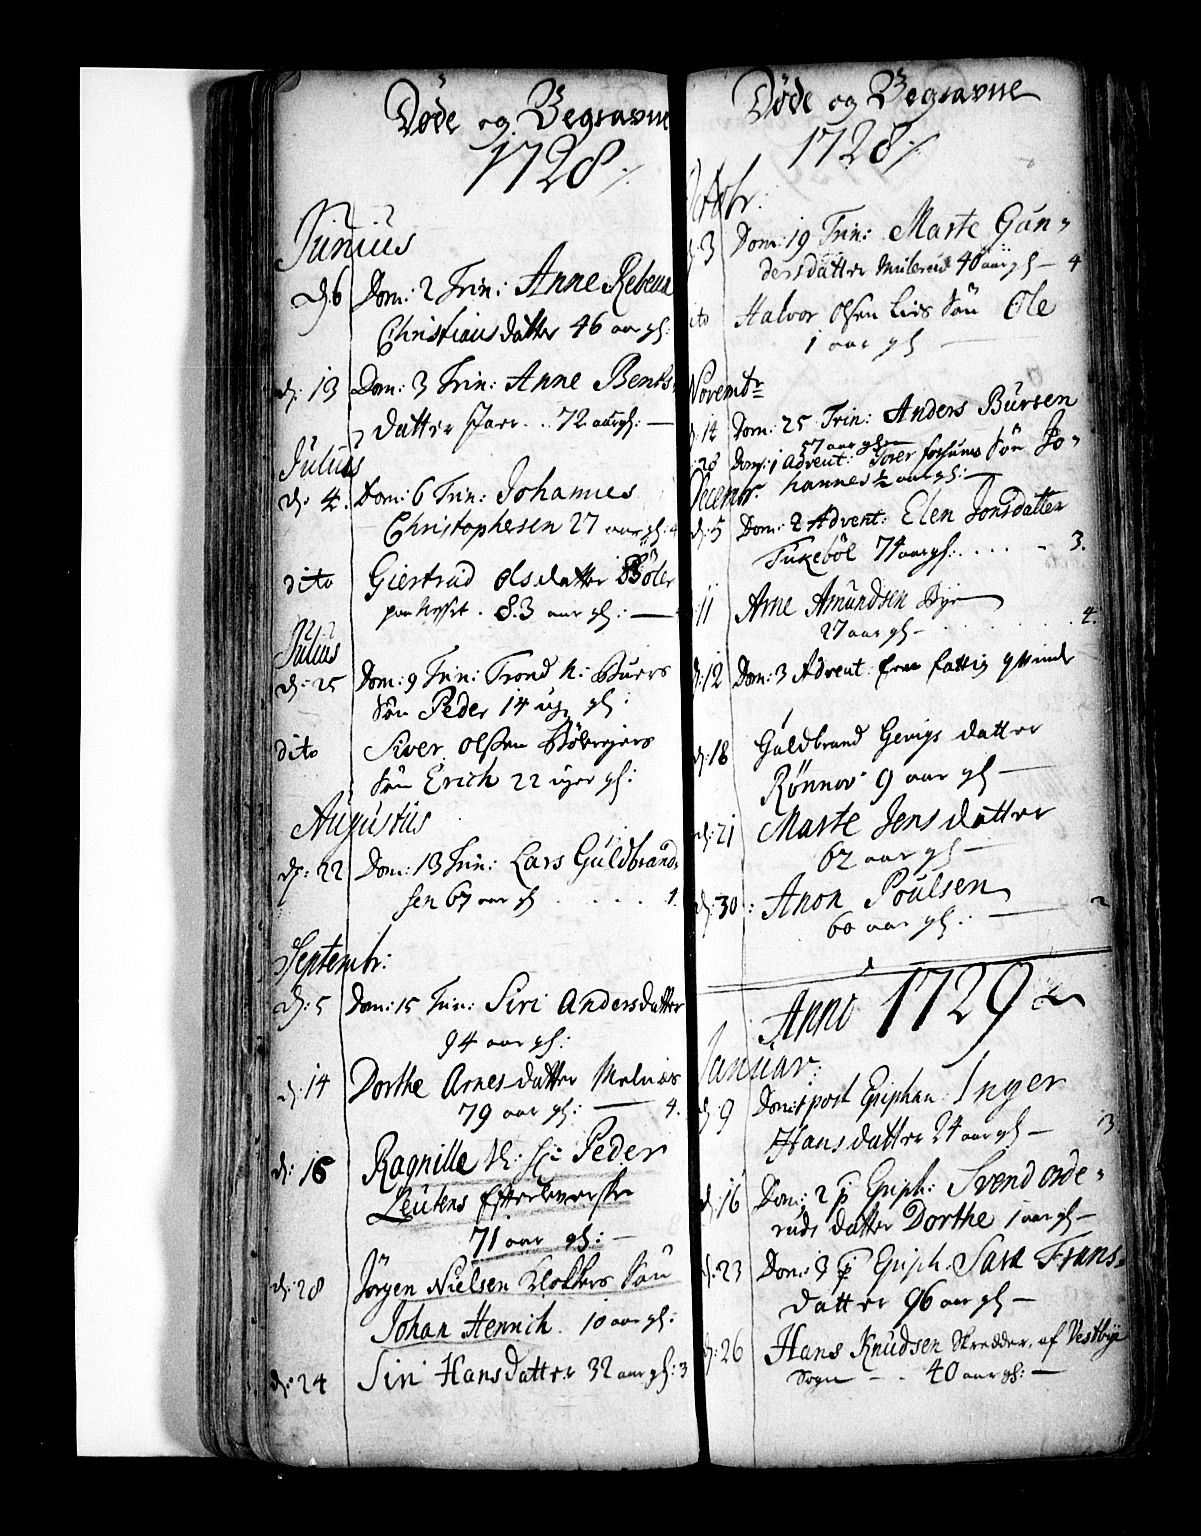 Døde og Begravne
1728
Junius
d: 6 Dom: 2 Trin: Anne Rebecca
Christians datter 46 aar gl:
d: 13 Dom: 3 Trin: Anne Bents
datter 72 aar gl: —
Julius
d: 4. Dom: 6 Trin: Johannes
Christophersen 27 aar gl: 4
dito Giertrud olsdatter Böler
paa 83 aar gl: —
Julius
d: 25 Dom: 9 Trin: Trond N:
Sön Peder 14 ug gl:
dito Siver olssen
Sön Erich 22 uger gl:
Augustus
d: 22 Dom: 13 Trin: Lars Guldbrand-
sen 67 aar gl . . . . . 1.
Septembr:
d: 5 Dom: 15 Trin: Siri Andersdatter
94 aar gl:
d: 14 Dorthe Arnesdatter Melnæs
79 aar gl: — 4.
d: 16 Ragnille Sl: Peder
Leutens Efterleverske
71 aar gl: —
d: 28 Jörgen Nielsen Klokkers Sön
Johan Henrich. 10 aar gl:
d: 24 Siri Hansdatter 32 aar gl: 3
Døde og Begravne
1728
Octobr:
d: 3 Dom: 19 Trin: Marte Gun-
dersdatter Muterud 40 aar gl — 4
dito Halvor Olsen Lies Sön Ole
1 aar gl —
Novembr
d: 14 Dom: 25 Trin: Anders Bursen
57 aar glsen
d: 28 Dom: 1 Advent: Sön Jo-
hannes ½ aar gl: —
Decembr.
d: 5 Dom: 2 Advent: Elen Jonsdatter
Tukebøl 74 aar gl: . . . . . 3.
11 Arne Amundsen Bye
27 aar gl — . . . . . . 4.
d: 12 Dom: 3 Advent. Een fattig qvinde
d: 18 Guldbrand datter
Rønnov 9 aar gl —
d: 21 Marte Jensdatter
62 aar gl —
d: 30: Anon Poulsen
60 aar gl: — 2
Anno 1729
Januar:
d: 9 Dom: 1 post Epiphan: Inger
Hansdatter 24 aar gl — 3
d: 16 Dom: 2 p Epiph: Svend orde-
ruds datter Dorthe 1 aar gl —
d: 23 Dom: 3 p Epiph. Sara Frans-
datter 96 aar gl —
d: 26 Hans Knudsen Skredder, af Vestbye
Sogn — . 40 aar gl: —